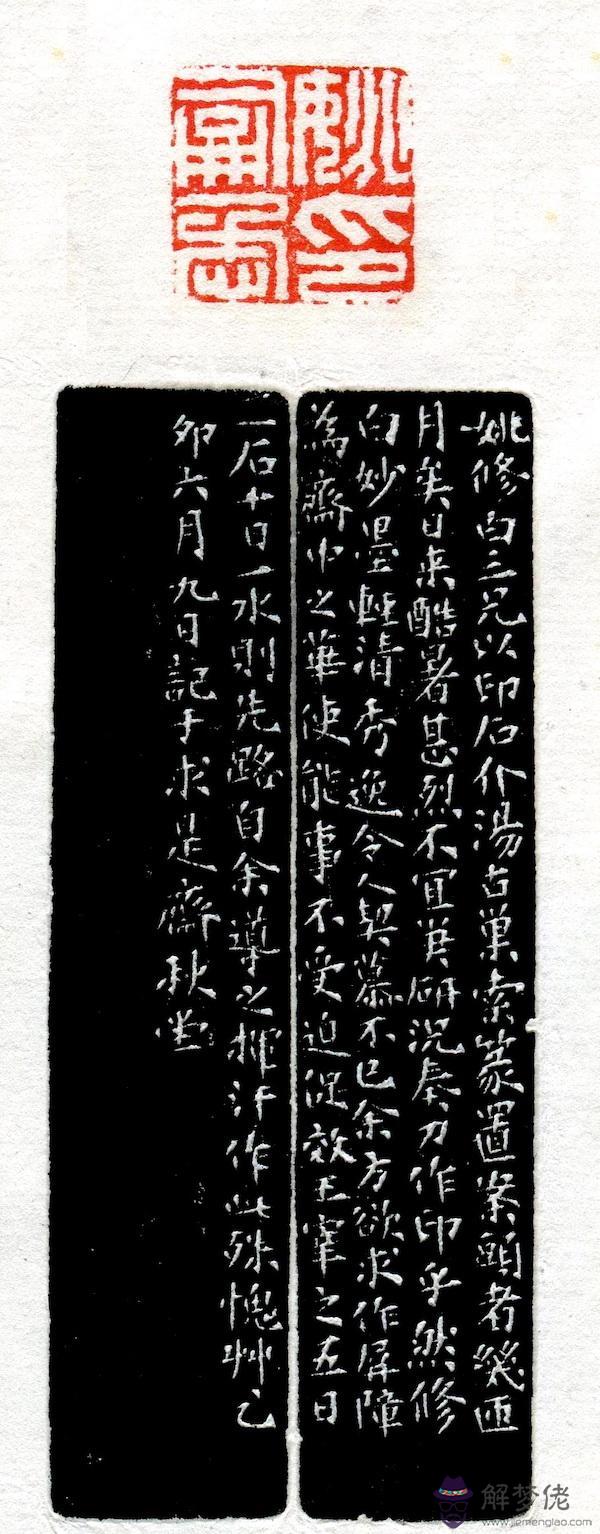 姚印
姚修白三兄以印石介湯古巢索篆置案頭者幾匝
月矣日来酷暑甚烈不宜筆研況奏刀作印乎然修
白妙墨輕清秀逸令人契慕不已余方欲求作屏障
為齋中之華使能事不受迫促效王宰之五日
一石十日一水則先路自余導之揮汗作此殊愧艸乙
卯六月九日記于求是齋秋堂
解梦佬
www.jiemenglao.com